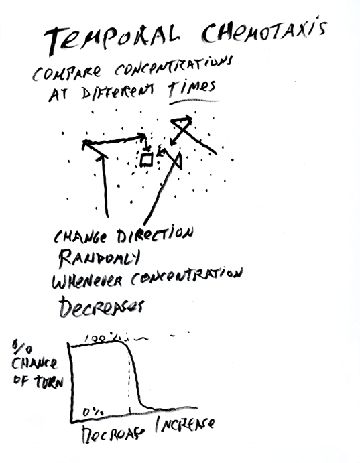 TEMPORAL CHEMOTAXIS
COMPARE CONCENTRATIONS
AT DIFFERENT TIMES
CHANGE DIRECTION
RANDOMLY
WHENEVER CONCENTRATION
DECREASES
%
CHANCE
OF TURN
100%
0%
DECREASE INCREASE